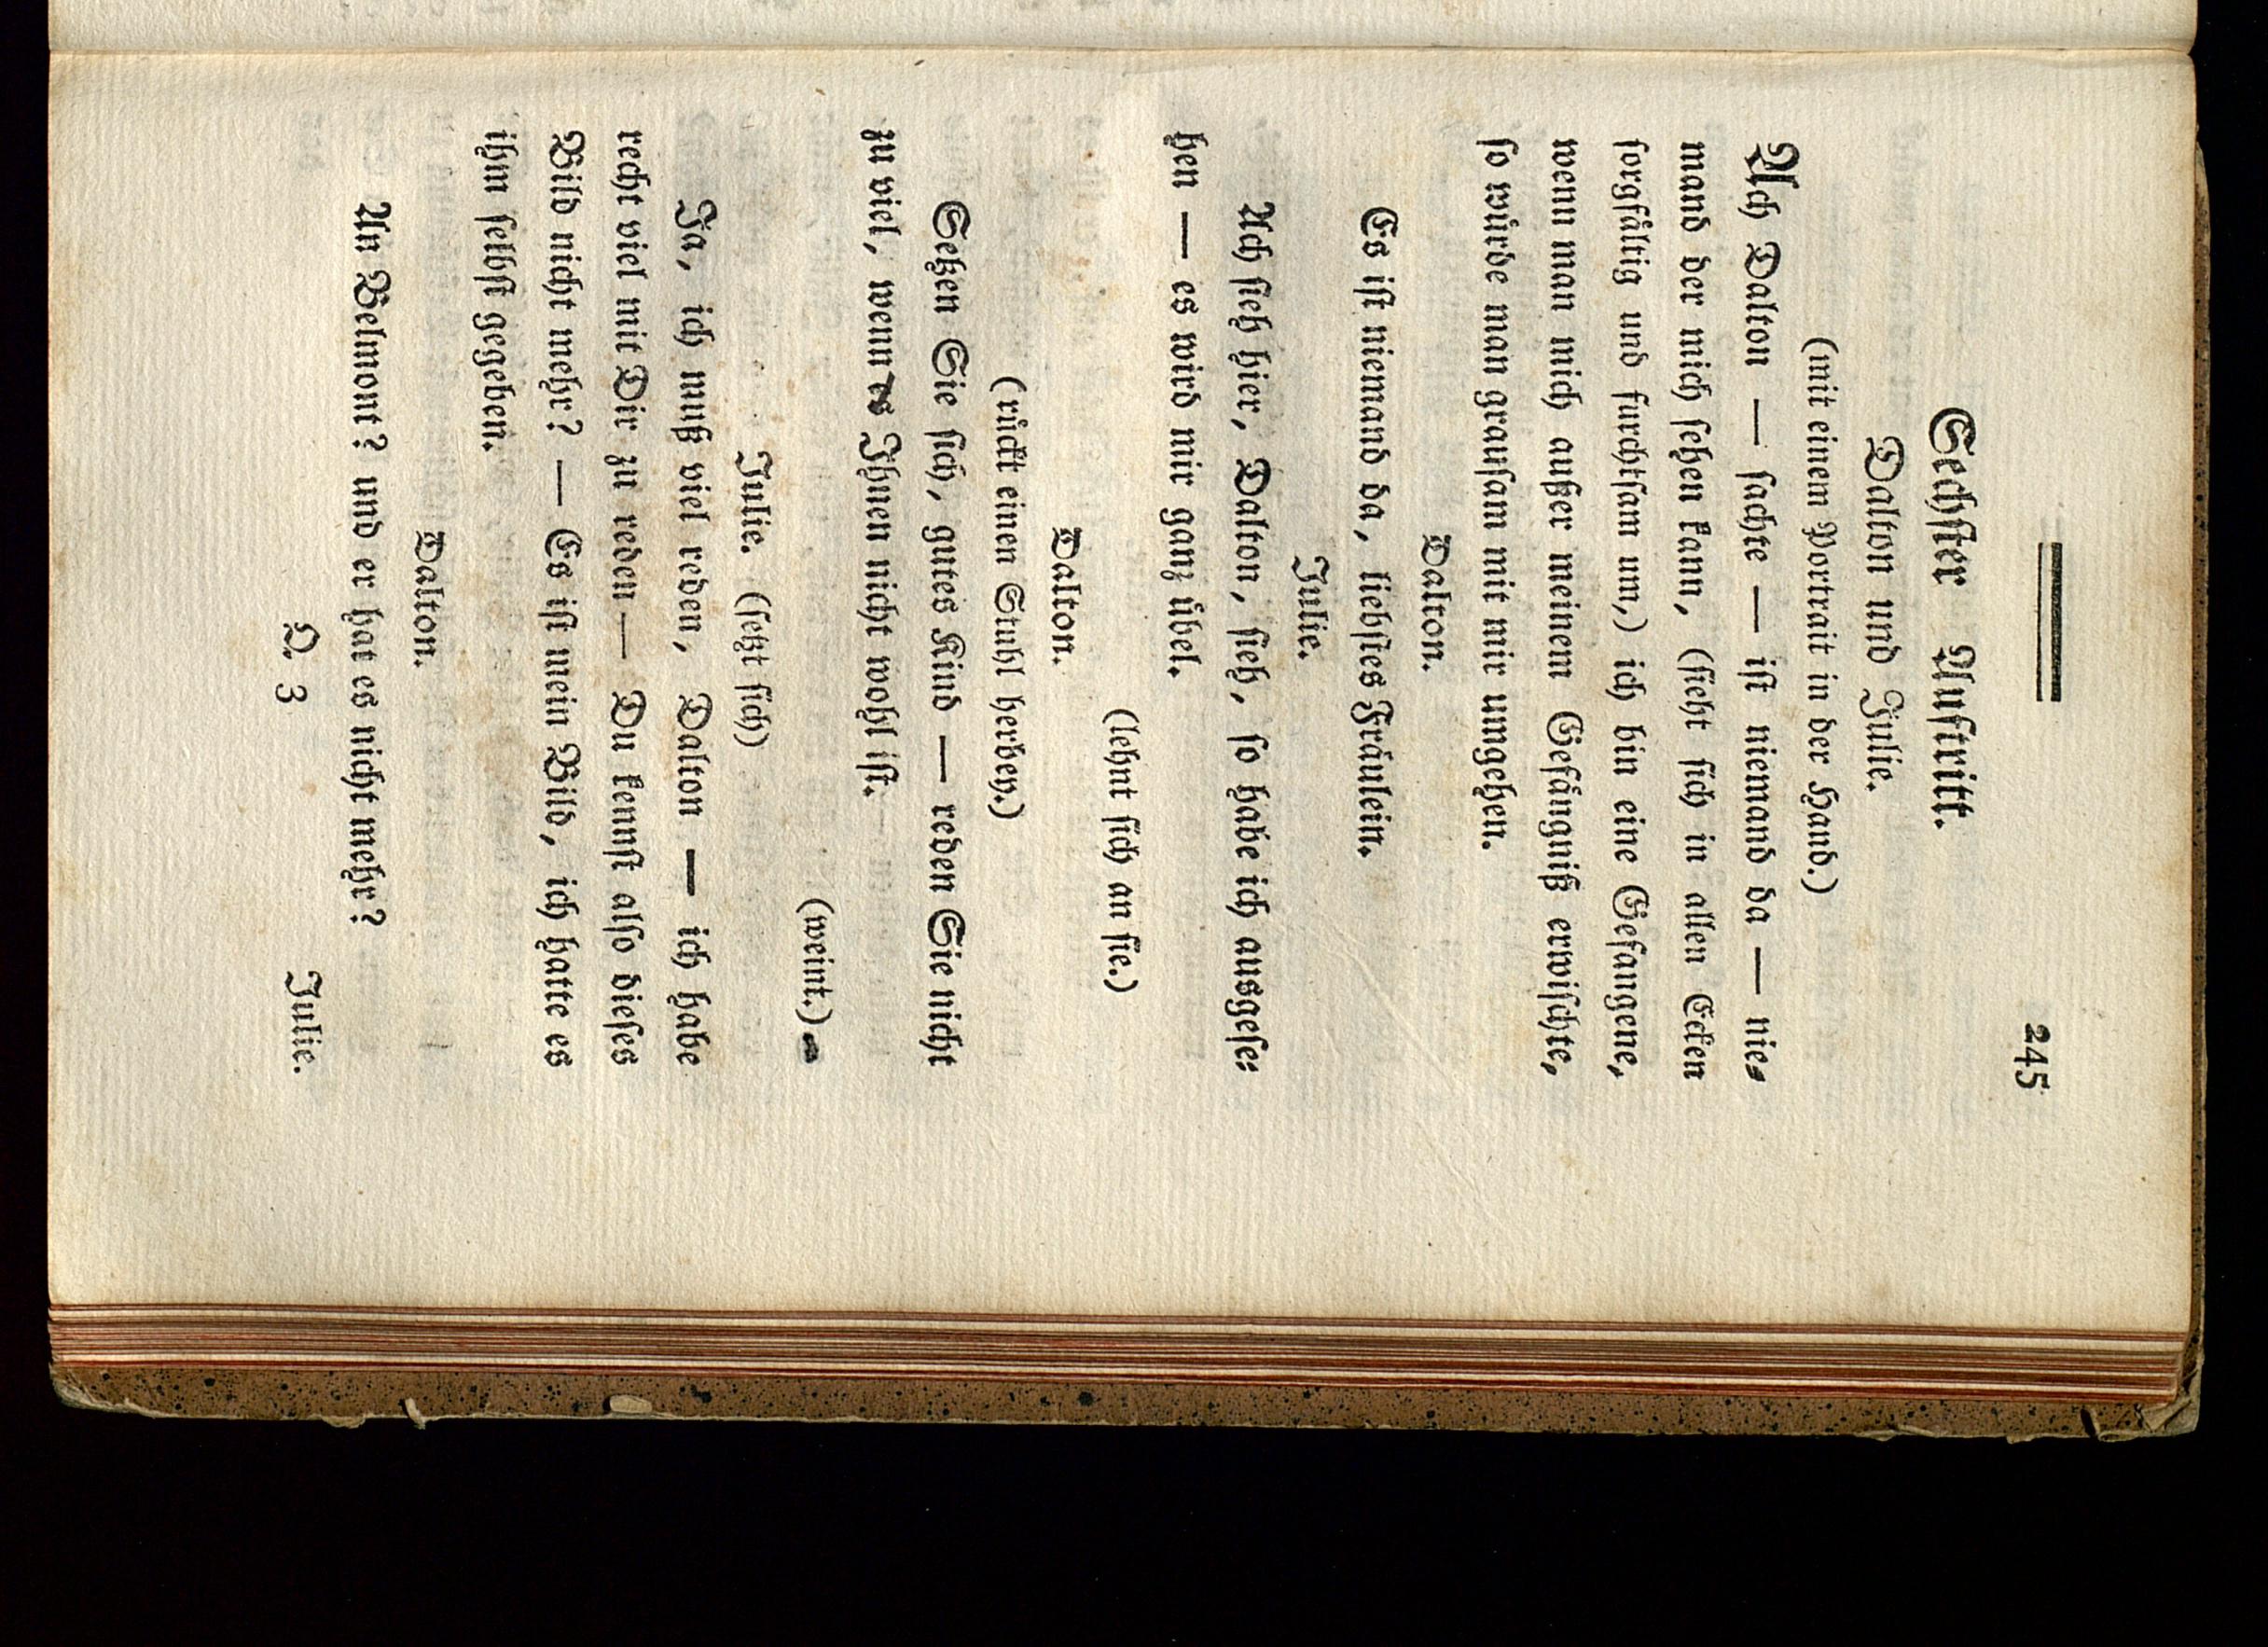 245
Sechster Auftritt.
Dalton und Julie.
(mit einem Portrait in der Hand.)
Ach Dalton — sachte — ist niemand da — nie⸗
mand der mich sehen kann, (sieht sich in allen Ecken
sorgfältig und furchtsam um,) ich bin eine Gefangene,
wenn man mich außer meinem Gefängniß erwischte,
so würde man grausam mit mir umgehen.
Dalton.
Es ist niemand da, liebstes Fräulein.
Julie.
Ach sieh hier, Dalton, sieh, so habe ich ausgese⸗
hen — es wird mir ganz übel.
(lehnt sich an sie.)
Dalton.
(rückt einen Stuhl herbey.)
Setzen Sie sich, gutes Kind — reden Sie nicht
zu viel, wenn es Ihnen nicht wohl ist.
(weint.)
Julie. (setzt sich)
Ja, ich muß viel reden, Dalton — ich habe
recht viel mit Dir zu reden — Du kennst also dieses
Bild nicht mehr? — Es ist mein Bild, ich hatte es
ihm selbst gegeben.
Dalton.
An Belmont? und er hat es nicht mehr?
Q 3
Julie.